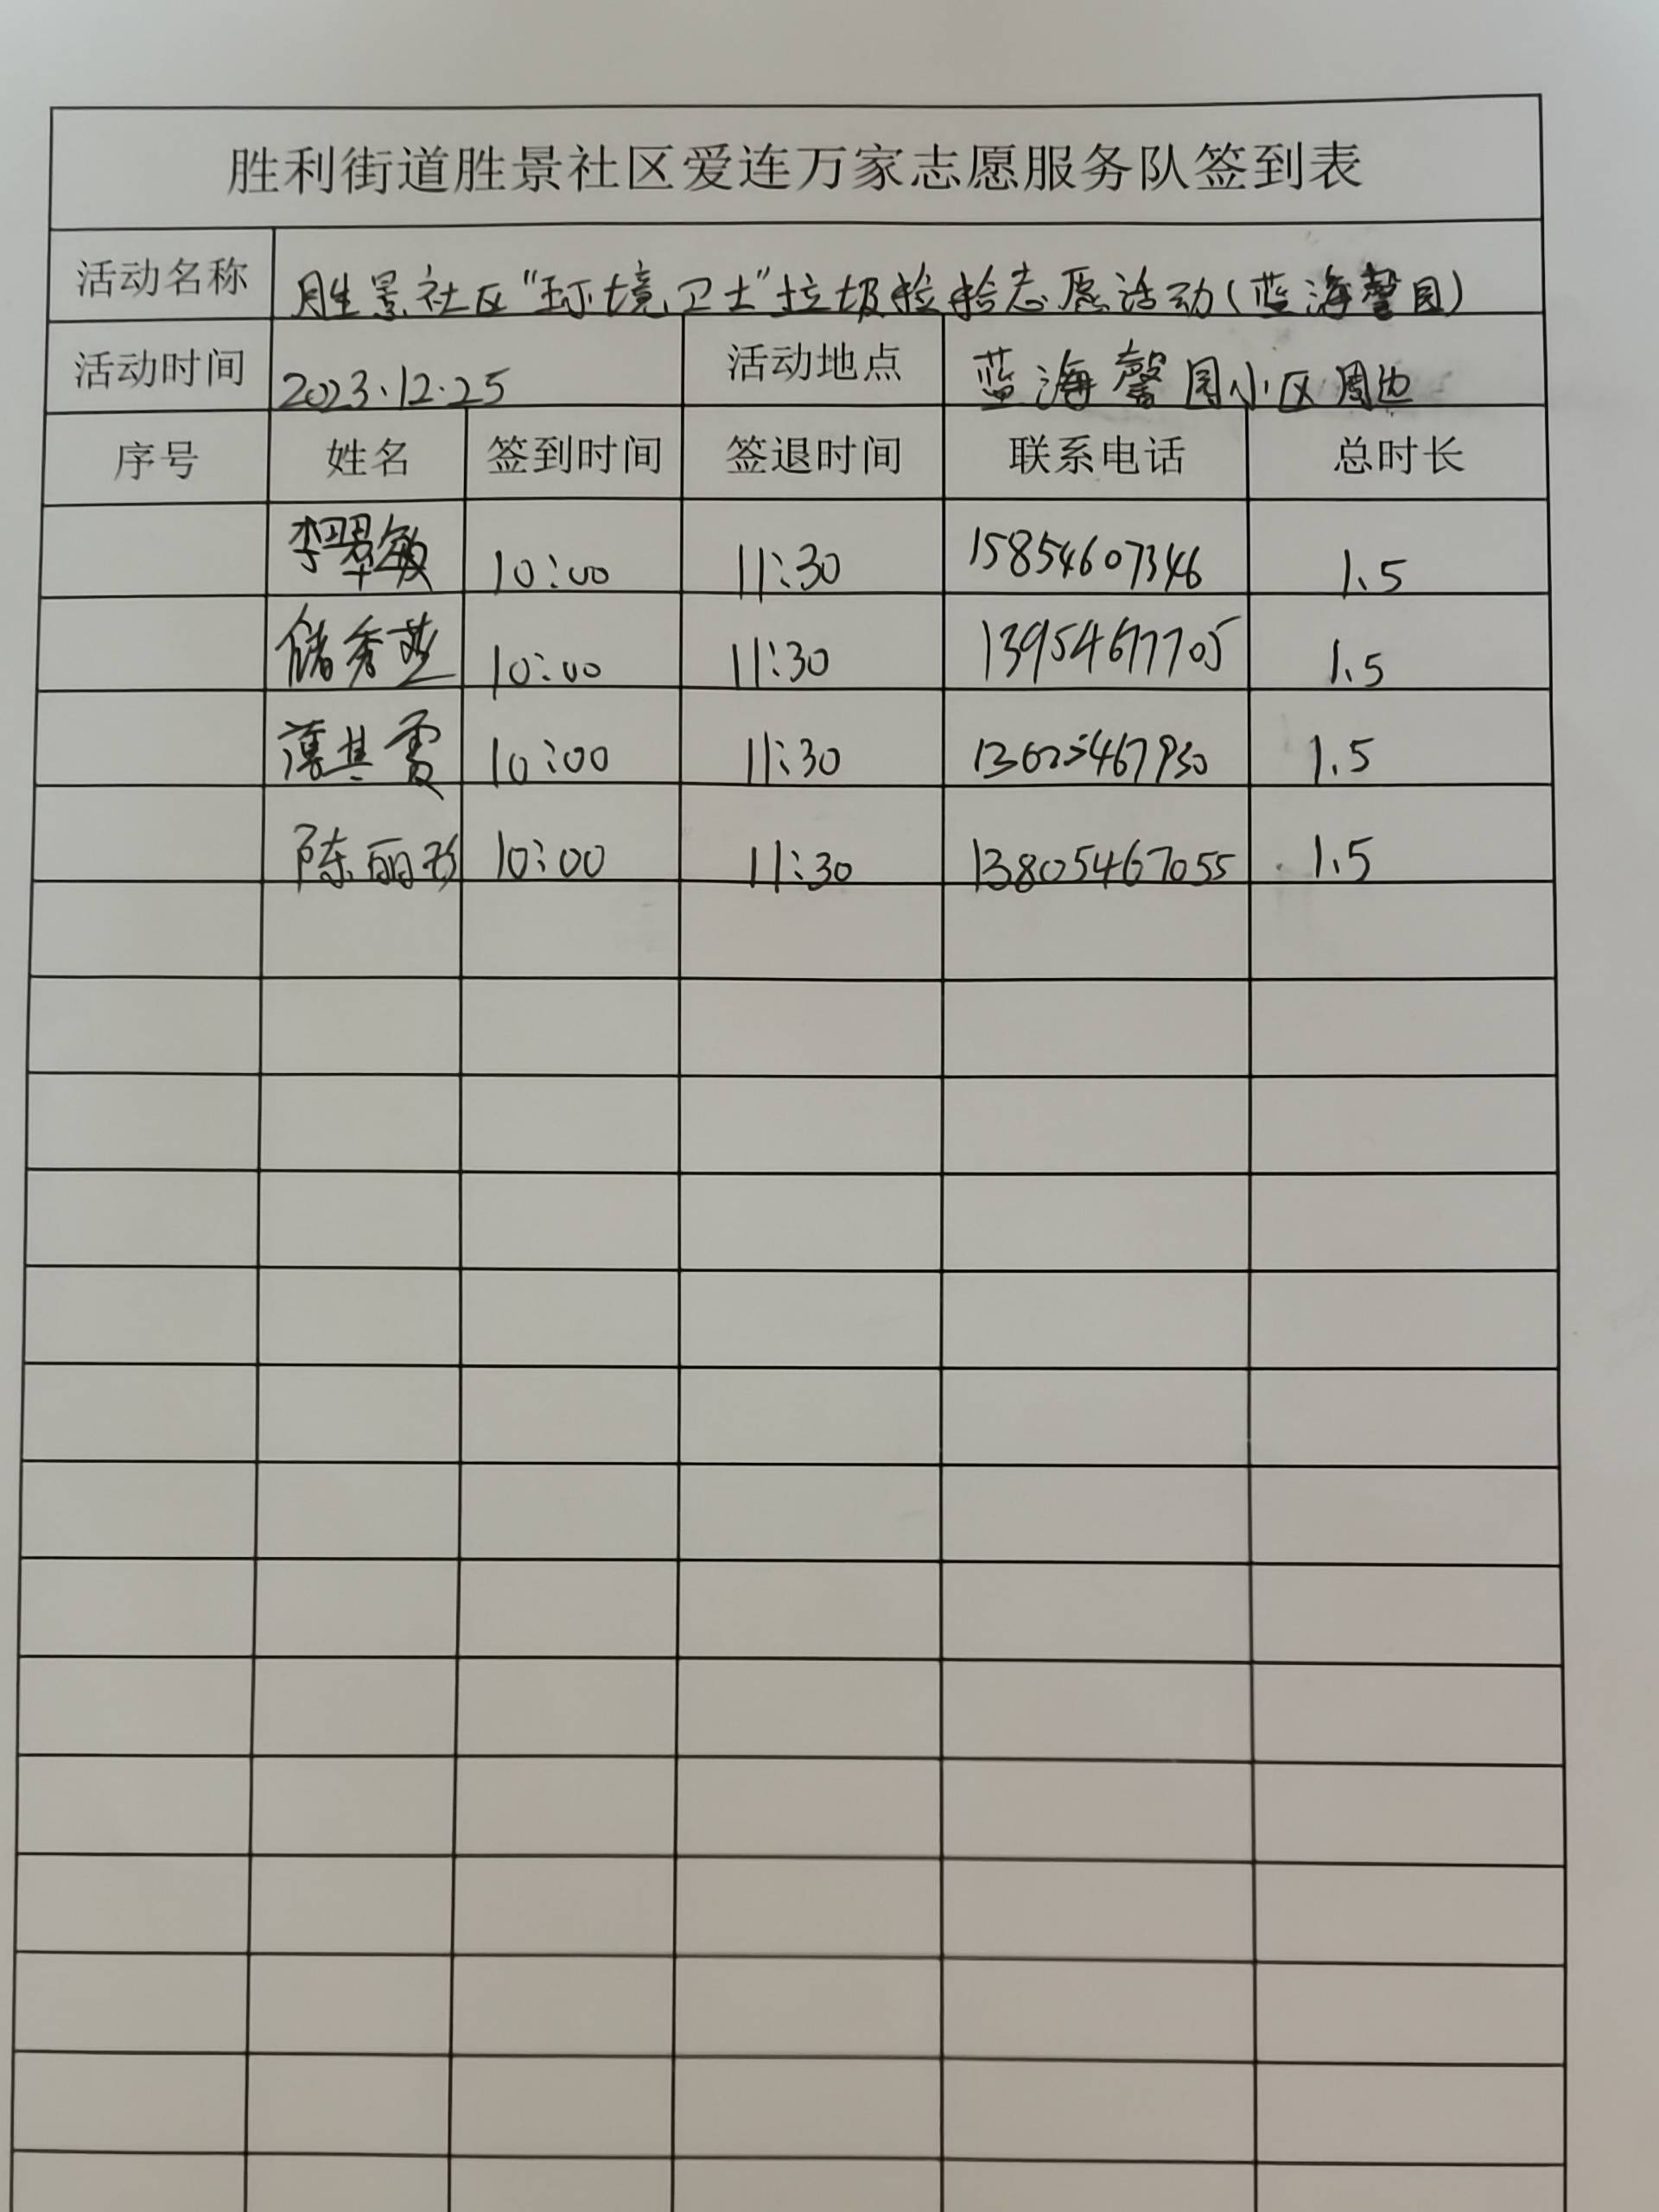 胜利街道胜景社区爱连万家志愿服务队签到表
活动名称 胜景社区"环境卫士"垃圾捡拾志愿活动(蓝海馨园)
活动时间 2023.12.25 活动地点 蓝海馨园小区周边
序号 姓名 签到时间 签退时间 联系电话 总时长
李翠敏 10:00 11:30 15854607346 1.5
储秀燕 10:00 11:30 13954677705 1.5
薄其雷 10:00 11:30 1.5
陈丽 10:00 11:30 13805467055 1.5